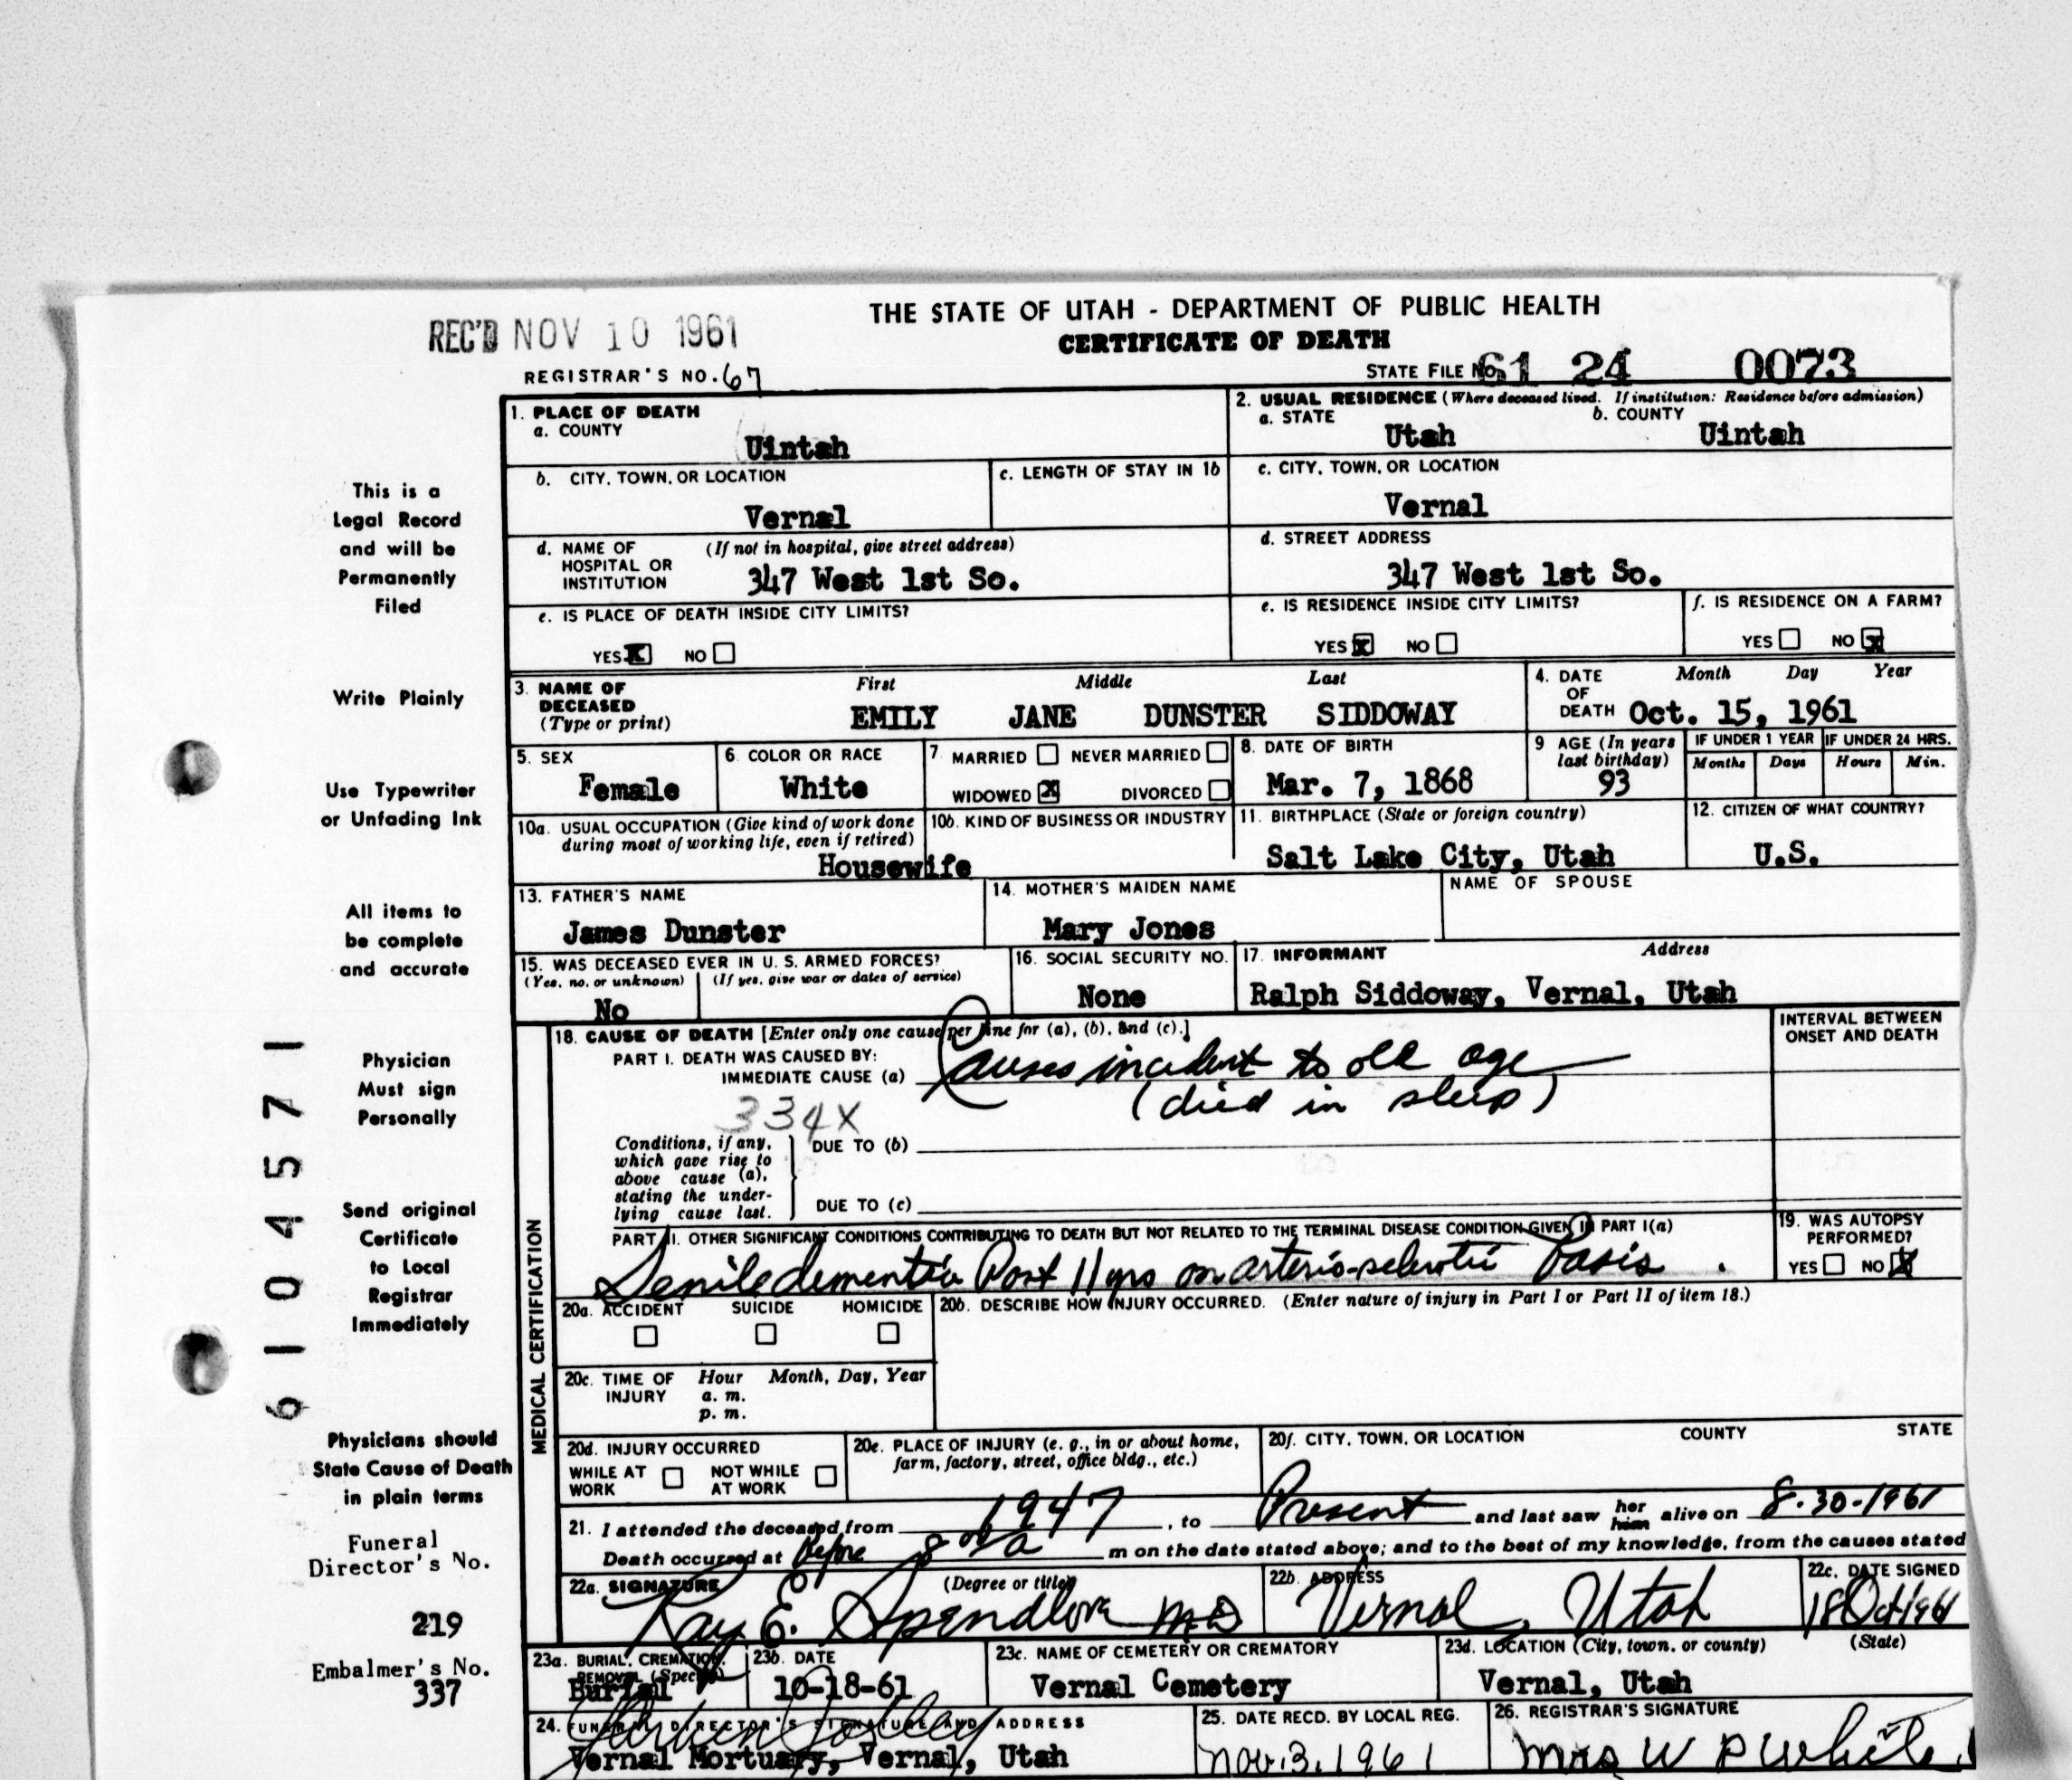 THE STATE OF UTAH - DEPARTMENT OF PUBLIC HEALTH
REC'D NOV 10 1961
CERTIFICATE OF DEATH
REGISTRAR'S NO. 67
STATE FILE NO. 61 24 0073
1. PLACE OF DEATH
a. COUNTY
Uintah
2. USUAL RESIDENCE (Where deceased lived. If institution: Residence before admission)
a. STATE
Utah
b. COUNTY
Uintah
b. CITY, TOWN, OR LOCATION
Vernal
c. LENGTH OF STAY IN 1b
c. CITY, TOWN, OR LOCATION
Vernal
d. NAME OF HOSPITAL OR INSTITUTION
(If not in hospital, give street address)
347 West 1st So.
d. STREET ADDRESS
347 West 1st So.
e. IS PLACE OF DEATH INSIDE CITY LIMITS?
YES X NO
e. IS RESIDENCE INSIDE CITY LIMITS?
YES X NO
f. IS RESIDENCE ON A FARM?
YES NO X
3. NAME OF DECEASED
(Type or print)
First Middle Last
EMILY JANE DUNSTER SIDDOWAY
4. DATE OF DEATH
Month Day Year
Oct. 15, 1961
5. SEX
Female
6. COLOR OR RACE
White
7. MARRIED NEVER MARRIED
WIDOWED X DIVORCED
8. DATE OF BIRTH
Mar. 7, 1868
9 AGE (In years last birthday)
93
IF UNDER 1 YEAR
Months Days
IF UNDER 24 HRS.
Hours Min.
10a. USUAL OCCUPATION (Give kind of work done
during most of working life, even if retired)
Housewife
10b. KIND OF BUSINESS OR INDUSTRY
11. BIRTHPLACE (State or foreign country)
Salt Lake City, Utah
12. CITIZEN OF WHAT COUNTRY?
U.S.
13. FATHER'S NAME
James Dunster
14. MOTHER'S MAIDEN NAME
Mary Jones
NAME OF SPOUSE
15. WAS DECEASED EVER IN U. S. ARMED FORCES?
(Yes, no, or unknown) (If yes, give war or dates of service)
No
16. SOCIAL SECURITY NO.
None
17. INFORMANT Address
Ralph Siddoway, Vernal, Utah
MEDICAL CERTIFICATION
18. CAUSE OF DEATH [Enter only one cause per line for (a), (b), and (c).]
PART I. DEATH WAS CAUSED BY:
IMMEDIATE CAUSE (a) Causes incident to old age
(died in sleep)
334X
INTERVAL BETWEEN
ONSET AND DEATH
Conditions, if any,
which gave rise to
above cause (a),
stating the under-
lying cause last.
DUE TO (b)
DUE TO (c)
PART II. OTHER SIGNIFICANT CONDITIONS CONTRIBUTING TO DEATH BUT NOT RELATED TO THE TERMINAL DISEASE CONDITION GIVEN IN PART I(a)
Senile dementia Past 11 yrs on arterio-sclerotic basis.
19. WAS AUTOPSY
PERFORMED?
YES NO X
20a. ACCIDENT SUICIDE HOMICIDE
20b. DESCRIBE HOW INJURY OCCURRED. (Enter nature of injury in Part I or Part II of item 18.)
20c. TIME OF INJURY
Hour Month, Day, Year
a. m.
p. m.
20d. INJURY OCCURRED
WHILE AT WORK NOT WHILE AT WORK
20e. PLACE OF INJURY (e. g., in or about home,
farm, factory, street, office bldg., etc.)
20f. CITY, TOWN, OR LOCATION COUNTY STATE
21. I attended the deceased from 1947, to Present and last saw her him alive on 8-30-1961
Death occurred at Before 8 00 a m on the date stated above; and to the best of my knowledge, from the causes stated
22a. SIGNATURE (Degree or title)
Ray E. Spendlove MD
22b. ADDRESS
Vernal, Utah
22c. DATE SIGNED
18 Oct 1961
23a. BURIAL, CREMATION, REMOVAL (Specify)
Burial
23b. DATE
10-18-61
23c. NAME OF CEMETERY OR CREMATORY
Vernal Cemetery
23d. LOCATION (City, town, or county) (State)
Vernal, Utah
24. FUNERAL DIRECTOR'S SIGNATURE AND ADDRESS
Vernal Mortuary, Vernal, Utah
25. DATE RECD. BY LOCAL REG.
Nov. 3, 1961
26. REGISTRAR'S SIGNATURE
Mrs W P White
This is a
Legal Record
and will be
Permanently
Filed
Write Plainly
Use Typewriter
or Unfading Ink
All items to
be complete
and accurate
Physician
Must sign
Personally
Send original
Certificate
to Local
Registrar
Immediately
Physicians should
State Cause of Death
in plain terms
Funeral
Director's No.
219
Embalmer's No.
337
61 04571